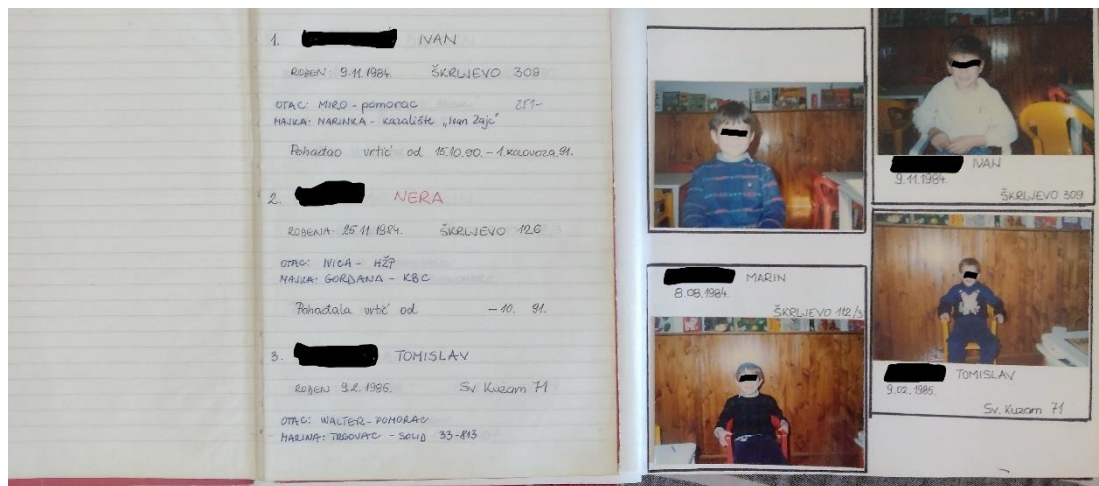 1. IVAN
ROĐEN: 9.11.1984. ŠKRLJEVO 309
OTAC: MIRO - pomorac 251-
MAJKA: MARINKA - kazalište "Ivan Zajc"
Pohađao vrtić od 15.10.90. - 1. kolovoza, 91.
2. NERA
ROĐENA: 25.11.1984. ŠKRLJEVO 126
OTAC: IVICA - HŽP
MAJKA: GORDANA - KBC
Pohađala vrtić od -10. 91.
3. TOMISLAV
ROĐEN 9.2.1985. Sv. Kuzam 71
OTAC: WALTER - POMORAC
MARINA: TRGOVAC - SOLID 33-813
IVAN
9.11.1984.
ŠKRLJEVO 309
MARIN
8.08.1984.
ŠKRLJEVO 112/3
TOMISLAV
9.02.1985.
Sv. Kuzam 71